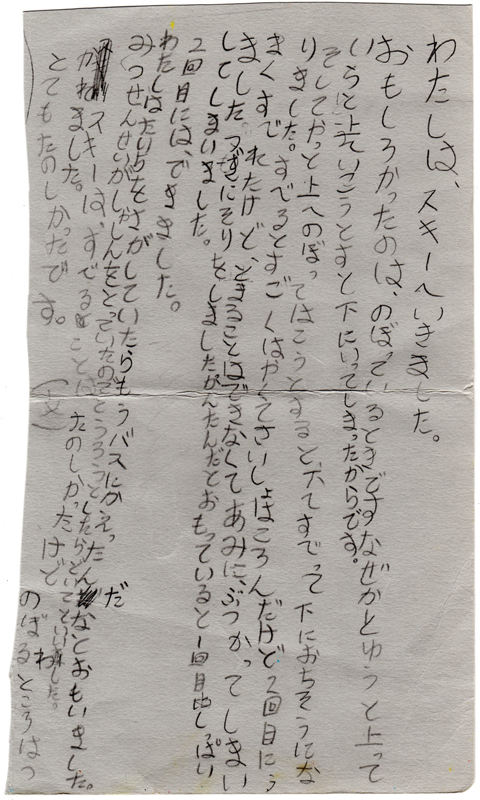 わたしは、スキーへいきました。
おもしろかったのは、のぼっているときですなぜかとゆうと上って
いらと上ていこうとすと下にいってしまったからです。
そしてやっと上へのぼってはこうとすると大てすでって下におちそうにな
りました。すべるとすごくはやくてさいしょはころんだけど2回目にう
まくすべれたけど、とまることはできなくてあみに、ぶつかってしまい
ました。つぎにそりをしましたかんたんだとおもっていると1回目しっぱい
してしまいました。
2回目には、できました。
わたしはたいちをさがしていたらもうバスにかえったんだ
なとおもいました。
みつせんせいがしゃしんをとっていたのでとうろうとしたらどいてといわ
れました。
スキーは、すべることは、たのしかったけどのぼるところはつ
かれました。
とてもたのしかったです。